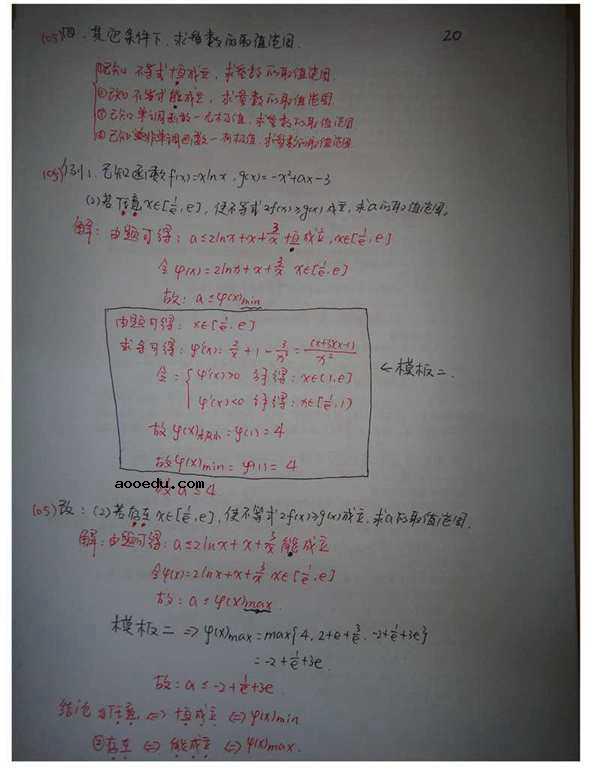 20
(05)四、其它条件下、求参数的取值范围.
①已知不等式恒成立，求参数的取值范围.
②已知不等式能成立，求参数的取值范围.
③已知单调函数—无极值.求参数的取值范围
④已知非单调函数—有极值.求参数的取值范围.
(05)例1.已知函数f(x)=xlnx，g(x)=-x²+ax-3
(2)若任意x∈[1/e,e]，使不等式2f(x)≥g(x)成立，求a的取值范围.
解：由题可得：a≤2lnx+x+3/x 恒成立，x∈[1/e,e]
令φ(x)=2lnx+x+3/x x∈[1/e,e]
故：a≤φ(x)min
由题可得：x∈[1/e,e]
求导可得：φ'(x)=2/x+1-3/x²=(x+3)(x-1)/x²
令={φ'(x)>0 得：x∈(1,e]
φ'(x)<0 得：x∈[1/e,1)
←模板二.
故φ(x)极小=φ(1)=4
故φ(x)min=φ(1)=4
aooedu.com
故a≤4
(05)改：(2)若存在x∈[1/e,e]，使不等式2f(x)≥g(x)成立，求a的取值范围.
解：由题可得：a≤2lnx+x+3/x 能成立
令φ(x)=2lnx+x+3/x x∈[1/e,e]
故：a≤φ(x)max.
模板二⇒φ(x)max=max{4,2+e+3/e,-2+1/e+3e}
=-2+1/e+3e
故：a≤-2+1/e+3e.
结论①任意⇔恒成立⇔φ(x)min
②存在⇔能成立⇔φ(x)max.